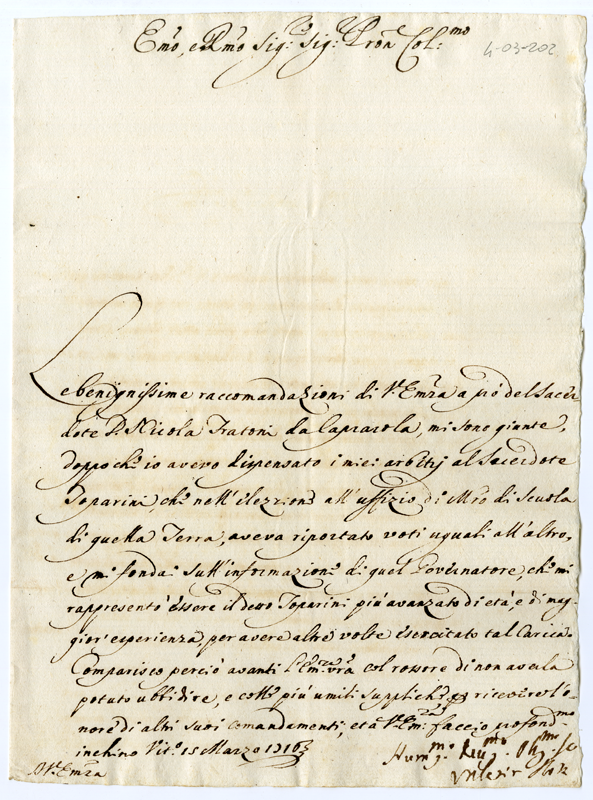 Emo, e Rmo Sig: Sig: Pron Col:mo
4-03-202
Le benignissime raccomandazioni di V. Emza a pró del Sacer
dote D. Nicola Fratoni da Caprarola, mi sono giunte,
doppo che io avevo dispensato i miei arbitrj al Sacerdote
Toparini, che nell'elezzione all'uffizio di Mro di Scuola
di quella Terra, aveva riportato voti uguali all'altro,
e mi fondai sull'informazione di quel Governatore, che mi
rappresentó essere il detto Toparini piú avanzato di etá, e di mag,
gior esperienza, per avere altre volte esercitato tal Carica.
Comparisco perció avanti l'Emza vra col rossore di non averla
potuto ubbidire, e colle piú umili suppliche di ricevere l'o,
nore di altri suoi comandamenti, et a V. Emza faccio profondmo
inchino Vito 15 Marzo
A V. Emza
Humo